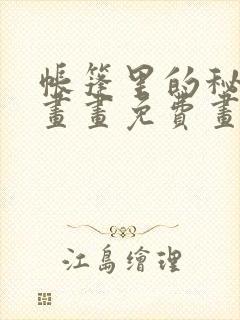 帳篷里的秘
畫畫免費畫
江島繪理